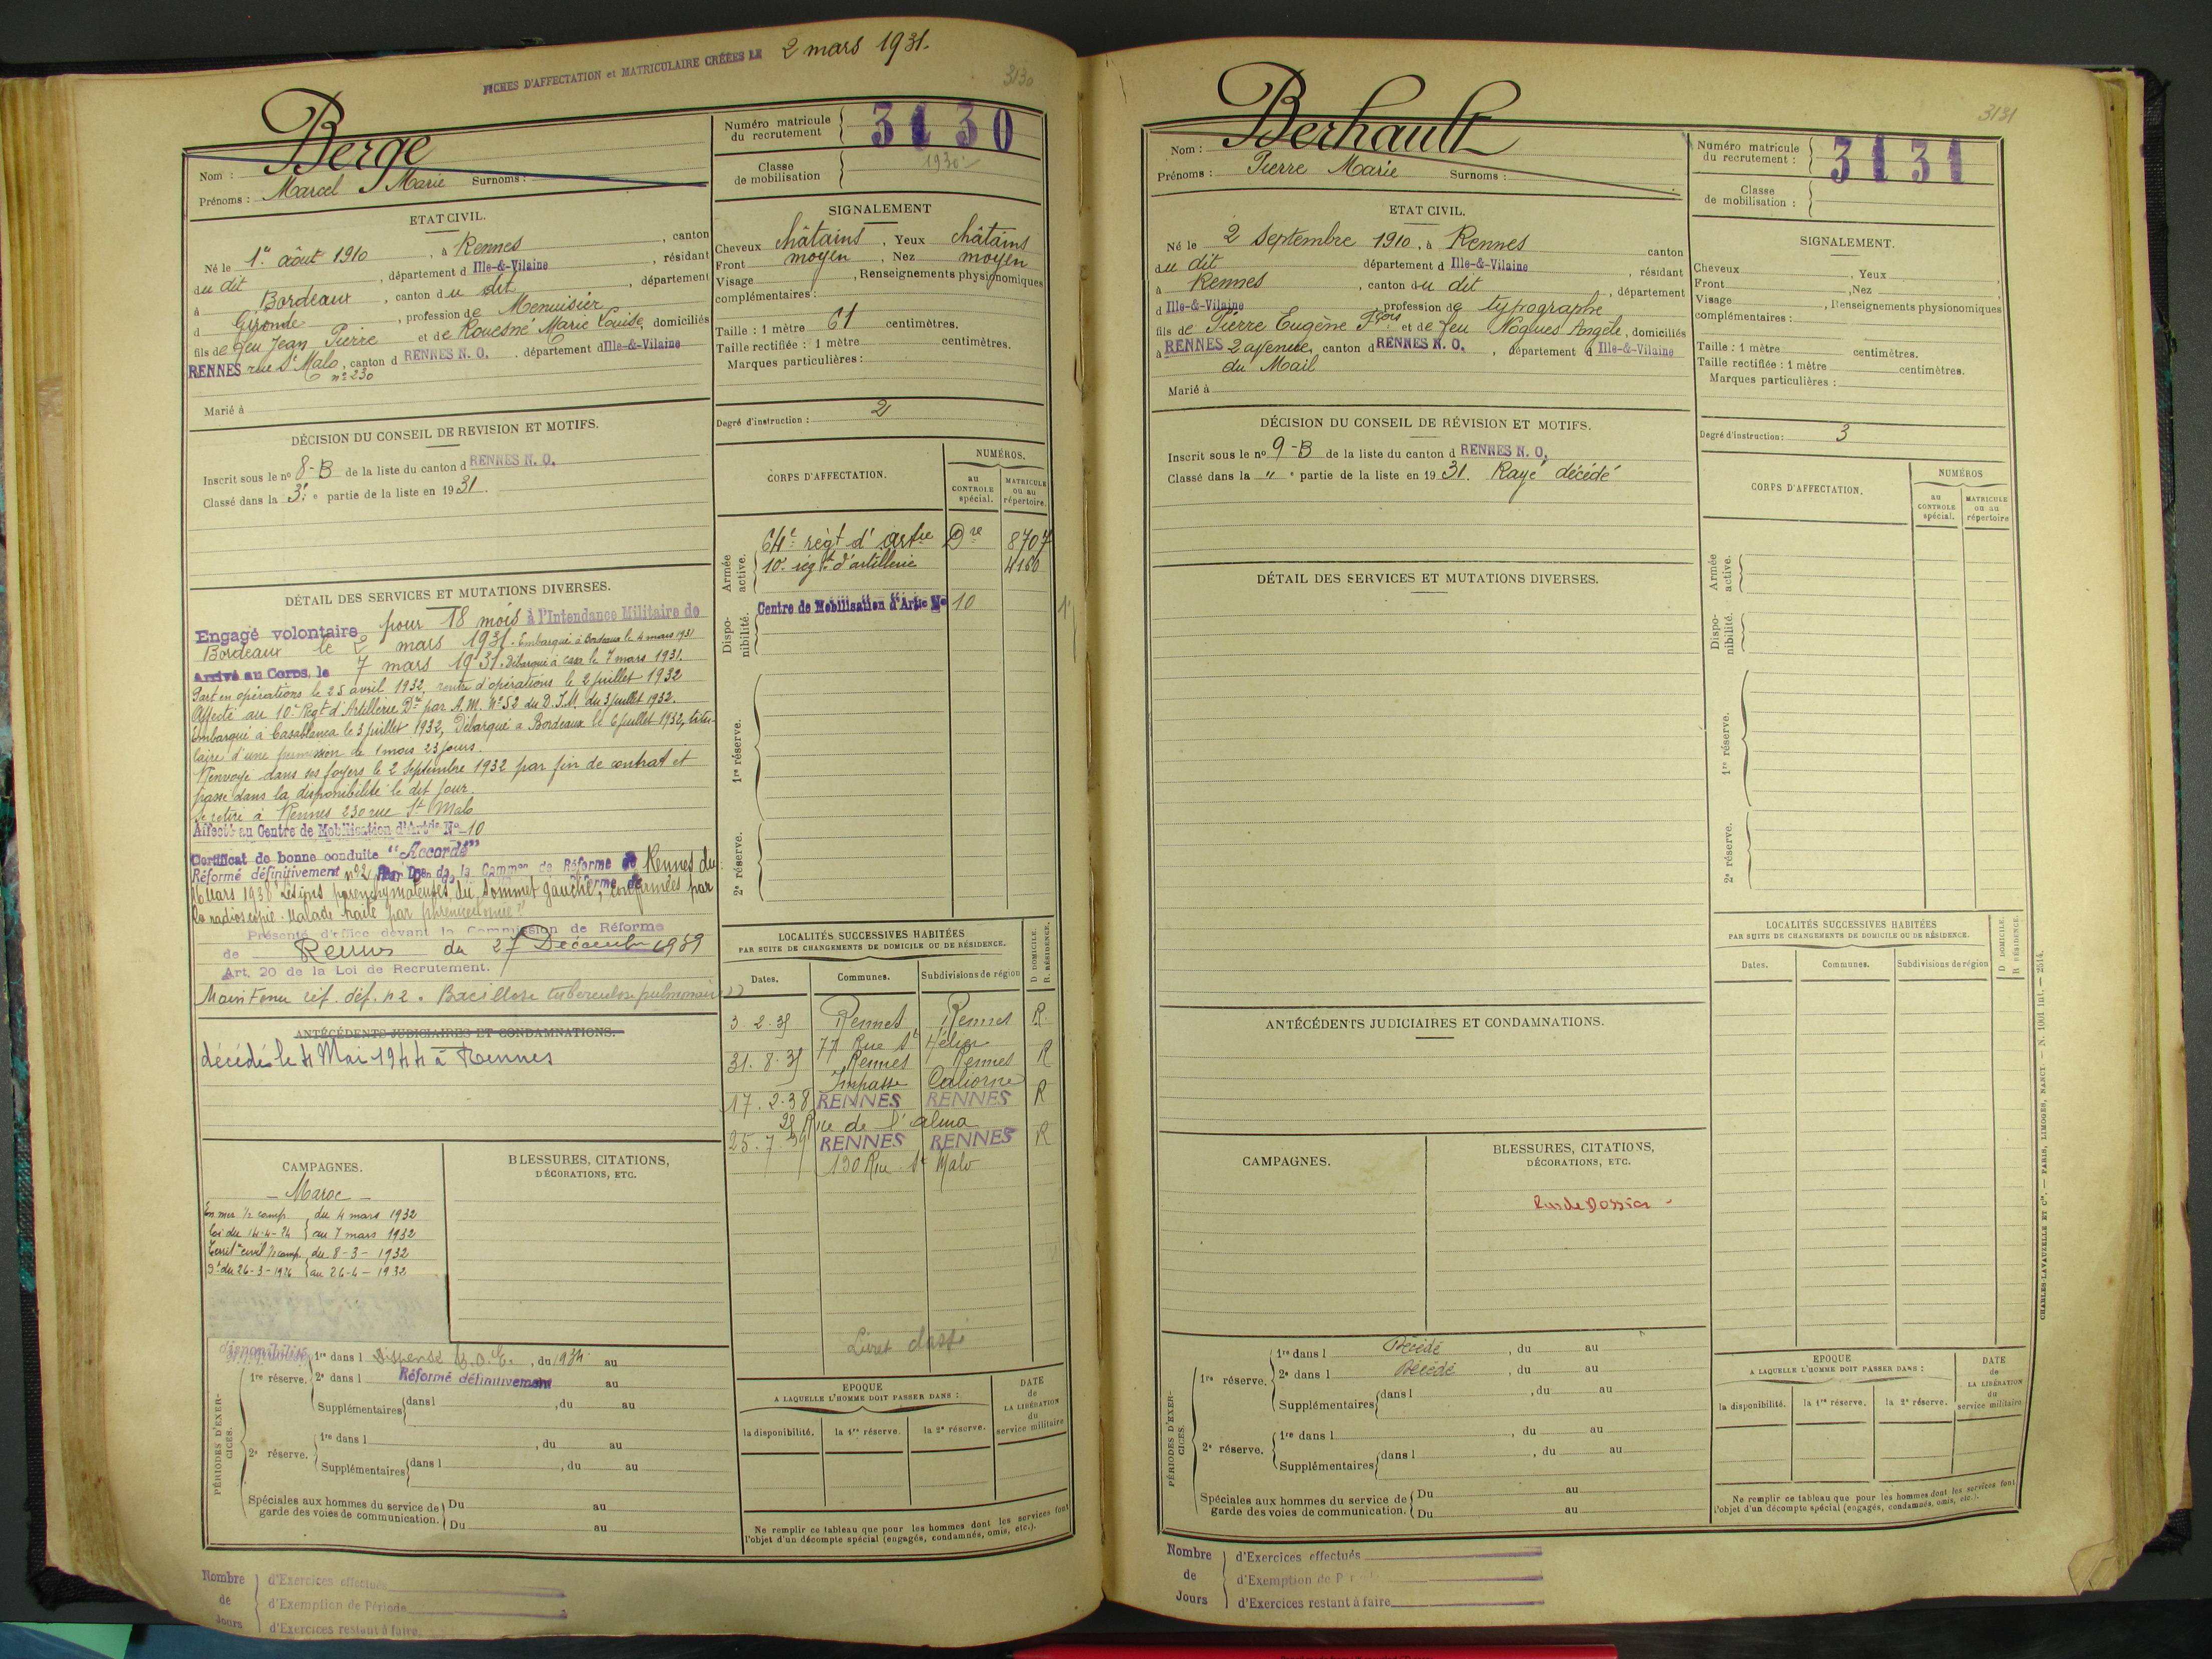 FICHES D'AFFECTATION et MATRICULAIRE CRÉÉES LE 2 mars 1931.
3130
Nom : Berge
Prénoms : Marcel Marie Surnoms :
Numéro matricule du recrutement 3130
Classe de mobilisation 1930
ETAT CIVIL.
Né le 1er août 1910, à Rennes, canton
du dit, département d Ille-&-Vilaine, résidant
à Bordeaux, canton du dit, département
d Gironde, profession de Menuisier
fils de feu Jean Pierre et de Rouesné Marie Louise, domiciliés
RENNES rue St Malo, canton d RENNES N. O., département d Ille-&-Vilaine
n° 230
Marié à
SIGNALEMENT
Cheveux châtains, Yeux châtains
Front moyen, Nez moyen
Visage, Renseignements physionomiques
complémentaires :
Taille : 1 mètre 61 centimètres.
Taille rectifiée : 1 mètre centimètres.
Marques particulières :
Degré d'instruction : 2
DÉCISION DU CONSEIL DE REVISION ET MOTIFS.
Inscrit sous le n° 8-B de la liste du canton d RENNES N. O.
Classé dans la 3e partie de la liste en 1931.
CORPS D'AFFECTATION.
NUMÉROS.
au CONTROLE spécial.
MATRICULE ou au répertoire.
Armée active.
64e régt d'artie Dre 8707
10e régt d'artillerie 4160
Disponibilité.
Centre de Mobilisation d'Artie N° 10
1re réserve.
2e réserve.
DÉTAIL DES SERVICES ET MUTATIONS DIVERSES.
Engagé volontaire pour 18 mois à l'Intendance Militaire de
Bordeaux le 2 mars 1931. Embarqué à Bordeaux le 4 mars 1931
Arrivé au Corps, le 7 mars 1931. Débarqué à Casa le 7 mars 1931.
Part en opérations le 25 avril 1932, rentre d'opérations le 2 juillet 1932
Affecté au 10e Régt d'Artillerie Dre par A.M. N°52 du D.I.M. du 3 juillet 1932.
Embarqué à Casablanca le 3 juillet 1932, Débarqué à Bordeaux le 6 juillet 1932, titu-
laire d'une permission de 1 mois 23 jours.
Renvoyé dans ses foyers le 2 Septembre 1932 par fin de contrat et
passé dans la disponibilité le dit jour.
Se retire à Rennes 230 rue St Malo
Affecté au Centre de Mobilisation d'Artie N° 10
Certificat de bonne conduite "Accordé"
Réformé définitivement n°2 Par Don de la Common de Réforme de Rennes du
16 Mars 1938 Lésions parenchymateuses du sommet gauche, confirmées par
la radioscopie. Malade traité par
Présenté d'office devant la Commission de Réforme
de Rennes du 27 Décembre 1939
Art. 20 de la Loi de Recrutement.
Maintenu réf. déf. n 2. Bacillose tuberculose pulmonaire
ANTÉCÉDENTS JUDICIAIRES ET CONDAMNATIONS.
décédé le 4 Mai 1944 à Rennes
LOCALITÉS SUCCESSIVES HABITÉES
PAR SUITE DE CHANGEMENTS DE DOMICILE OU DE RÉSIDENCE.
D DOMICILE. R. RÉSIDENCE.
Dates. Communes. Subdivisions de région
3.2.35 Rennes Rennes R.
77 Rue St Hélier
31.8.35 Rennes Rennes R
Impasse
17.2.38 RENNES RENNES R
Rue de l'alma
25.7.39 RENNES RENNES R
130 Rue St Malo
Livret classé
CAMPAGNES.
- Maroc -
En mer 1/2 camp du 4 mars 1932
loi du 14-4-24 au 7 mars 1932
Territre civil 1/2 camp. du 8-3-1932
Dt du 26-3-1926 au 26-6-1932
BLESSURES, CITATIONS,
DÉCORATIONS, ETC.
PÉRIODES D'EXERCICES.
disponibilité
1re réserve. 1re dans l Dispensé, du 1934 au
2e dans l Réformé définitivement au
Supplémentaires dans l, du au
2e réserve. 1re dans l, du au
Supplémentaires dans l, du au
Spéciales aux hommes du service de garde des voies de communication. Du au
Du au
EPOQUE
A LAQUELLE L'HOMME DOIT PASSER DANS :
la disponibilité. la 1re réserve. la 2e réserve.
DATE de LA LIBÉRATION du service militaire
Ne remplir ce tableau que pour les hommes dont les services font
l'objet d'un décompte spécial (engagés, condamnés, omis, etc.).
Nombre de Jours
d'Exercices effectués
d'Exemption de Période
d'Exercices restant à faire
3131
Nom : Berhault
Prénoms : Pierre Marie Surnoms :
Numéro matricule du recrutement : 3131
Classe de mobilisation :
ETAT CIVIL.
Né le 2 Septembre 1910, à Rennes canton
du dit département d Ille-&-Vilaine, résidant
à Rennes, canton du dit, département
d Ille-&-Vilaine, profession de typographe
fils de Pierre Eugène Fçois et de feu Nogues Angèle, domiciliés
à RENNES 2 avenue, canton d RENNES N. O., département d Ille-&-Vilaine
du Mail
Marié à
SIGNALEMENT.
Cheveux, Yeux
Front, Nez
Visage, Renseignements physionomiques
complémentaires :
Taille : 1 mètre centimètres.
Taille rectifiée : 1 mètre centimètres.
Marques particulières :
Degré d'instruction : 3
DÉCISION DU CONSEIL DE RÉVISION ET MOTIFS.
Inscrit sous le n° 9-B de la liste du canton d RENNES N. O.
Classé dans la " e partie de la liste en 1931. Rayé décédé
CORPS D'AFFECTATION.
NUMÉROS
au CONTROLE spécial.
MATRICULE ou au répertoire
Armée active.
Disponibilité.
1re réserve.
2e réserve.
DÉTAIL DES SERVICES ET MUTATIONS DIVERSES.
ANTÉCÉDENTS JUDICIAIRES ET CONDAMNATIONS.
LOCALITÉS SUCCESSIVES HABITÉES
PAR SUITE DE CHANGEMENTS DE DOMICILE OU DE RÉSIDENCE.
D DOMICILE. R RÉSIDENCE.
Dates. Communes. Subdivisions de région
CAMPAGNES.
BLESSURES, CITATIONS,
DÉCORATIONS, ETC.
Pas de Dossier -
PÉRIODES D'EXERCICES.
1re réserve. 1re dans l Décédé, du au
2e dans l Décédé, du au
Supplémentaires dans l, du au
2e réserve. 1re dans l, du au
Supplémentaires dans l, du au
Spéciales aux hommes du service de garde des voies de communication. Du au
Du au
EPOQUE
A LAQUELLE L'HOMME DOIT PASSER DANS :
la disponibilité. la 1re réserve. la 2e réserve.
DATE de LA LIBÉRATION du service militaire
Ne remplir ce tableau que pour les hommes dont les services font
l'objet d'un décompte spécial (engagés, condamnés, omis, etc.).
CHARLES-LAVAUZELLE ET Cie. — PARIS, LIMOGES, NANCY. — N. 1001 int. — 2514.
Nombre de Jours
d'Exercices effectués
d'Exemption de P
d'Exercices restant à faire